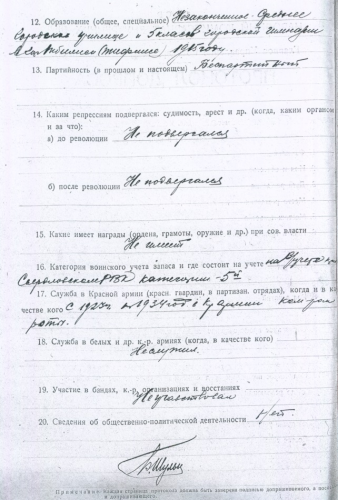 12. Образование (общее, специальное) Незаконченное-Среднее
Городское училище и 5 классов городской гимназии
в 1915 году.
13. Партийность (в прошлом и настоящем) Беспартийный
14. Каким репрессиям подвергался: судимость, арест и др. (когда, каким органом
и за что):
а) до революции Не подвергался
б) после революции Не подвергался
15. Какие имеет награды (ордена, грамоты, оружие и др.) при сов. власти
Не имеет
16. Категория воинского учета запаса и где состоит на учете на учете при
Свердловском РВК категории - 5й
17. Служба в Красной армии (красн. гвардии, в партизан. отрядах), когда и в ка-
честве кого С 1923г по 1934 год в Кр армии ком
роты.
18. Служба в белых и др. к.-р. армиях (когда, в качестве кого)
Не служил.
19. Участие в бандах, к.-р. организациях и восстаниях
Не участвовал
20. Сведения об общественно-политической деятельности Нет.
Примечание: Каждая страница протокола должна быть заверена подписью допрашиваемого, а последняя
и допрашивающего.